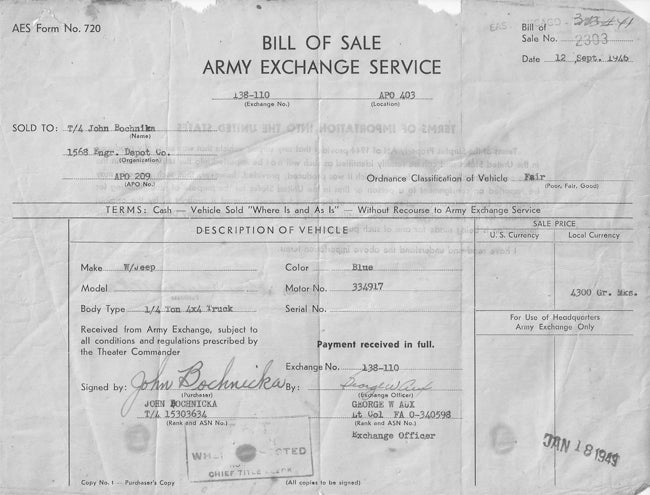 AES Form No. 720
BILL OF SALE
ARMY EXCHANGE SERVICE
Bill of
Sale No. 2393
Date 12 Sept. 1946
138-110 APO 403
(Exchange No.) (Location)
SOLD TO: T/4 John Bochnika
(Name)
1568 Engr. Depot Co.
(Organization)
APO 209
(APO No.)
Ordnance Classification of Vehicle Fair
(Poor, Fair, Good)
TERMS: Cash — Vehicle Sold "Where Is and As Is" — Without Recourse to Army Exchange Service
DESCRIPTION OF VEHICLE
SALE PRICE
U.S. Currency Local Currency
Make W/Jeep Color Blue
Model Motor No. 334917
4300 Gr. Mks.
Body Type 1/4 Ton 4x4 Truck Serial No.
For Use of Headquarters
Army Exchange Only
Received from Army Exchange, subject to
all conditions and regulations prescribed by
the Theater Commander
Payment received in full.
Exchange No. 138-110
Signed by: John Bochnicka By: George W Aux
(Purchaser) (Exchange Officer)
JOHN BOCHNICKA GEORGE W AUX
T/4 15303634 Lt Col FA 0-340598
(Rank and ASN No.) (Rank and ASN No.)
Exchange Officer
CHIEF TITLE CLERK
JAN 18 1949
Copy No. 1 — Purchaser's Copy (All copies to be signed)